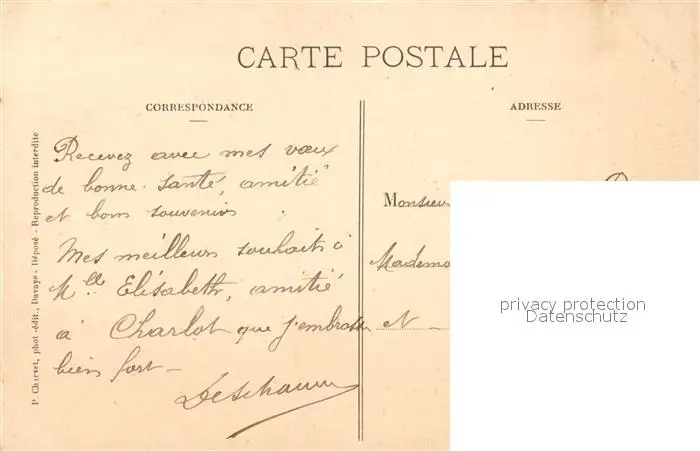 CARTE POSTALE
CORRESPONDANCE
ADRESSE
P. Charvet, phot.-édit., Davayé - Déposé - Reproduction interdite
Recevez avec mes vœux
de bonne santé, amitié
et bons souvenirs
Mes meilleurs souhaits à
Mlle Elisabeth, amitié
à Charlot que j'embrasse
bien fort -
Monsieur
Mademo
et
privacy protection
Datenschutz